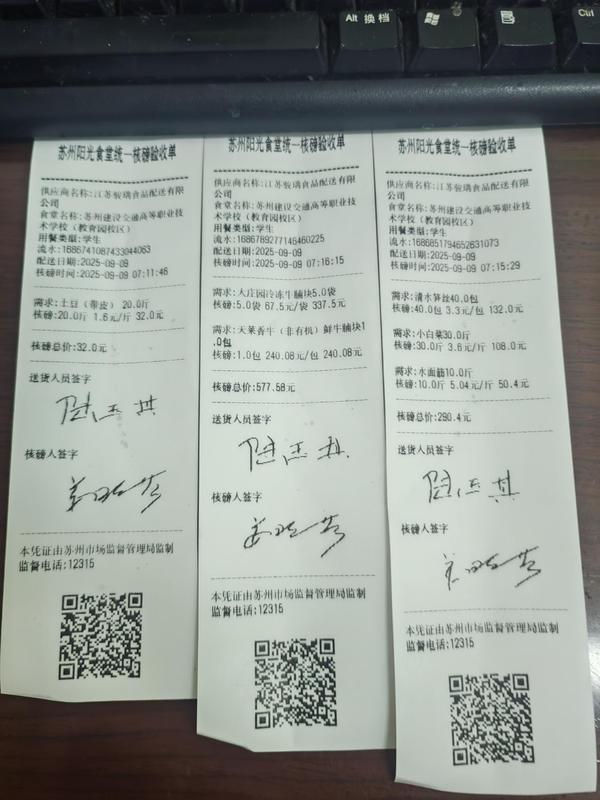 Alt 换档
Ctrl
苏州阳光食堂统一核磅验收单
供应商名称:江苏骏瑀食品配送有限
公司
食堂名称:苏州建设交通高等职业技
术学校（教育园校区）
用餐类型:学生
流水:1686741087433044063
配送日期:2025-09-09
核磅时间:2025-09-09 07:11:46
需求:土豆（带皮） 20.0斤
核磅:20.0斤 1.6元/斤 32.0元
核磅总价:32.0元
送货人员签字
核磅人签字
本凭证由苏州市场监督管理局监制
监督电话:12315
苏州阳光食堂统一核磅验收单
供应商名称:江苏骏瑀食品配送有限
公司
食堂名称:苏州建设交通高等职业技
术学校（教育园校区）
用餐类型:学生
流水:1686789277146460225
配送日期:2025-09-09
核磅时间:2025-09-09 07:16:15
需求:大庄园冷冻牛腩块5.0袋
核磅:5.0袋 67.5元/袋 337.5元
需求:天莱香牛（非有机）鲜牛腩块1
.0包
核磅:1.0包 240.08元/包 240.08元
核磅总价:577.58元
送货人员签字
核磅人签字
本凭证由苏州市场监督管理局监制
监督电话:12315
苏州阳光食堂统一核磅验收单
供应商名称:江苏骏瑀食品配送有限
公司
食堂名称:苏州建设交通高等职业技
术学校（教育园校区）
用餐类型:学生
流水:1686851794652631073
配送日期:2025-09-09
核磅时间:2025-09-09 07:15:29
需求:清水笋丝40.0包
核磅:40.0包 3.3元/包 132.0元
需求:小白菜30.0斤
核磅:30.0斤 3.6元/斤 108.0元
需求:水面筋10.0斤
核磅:10.0斤 5.04元/斤 50.4元
核磅总价:290.4元
送货人员签字
核磅人签字
本凭证由苏州市场监督管理局监制
监督电话:12315